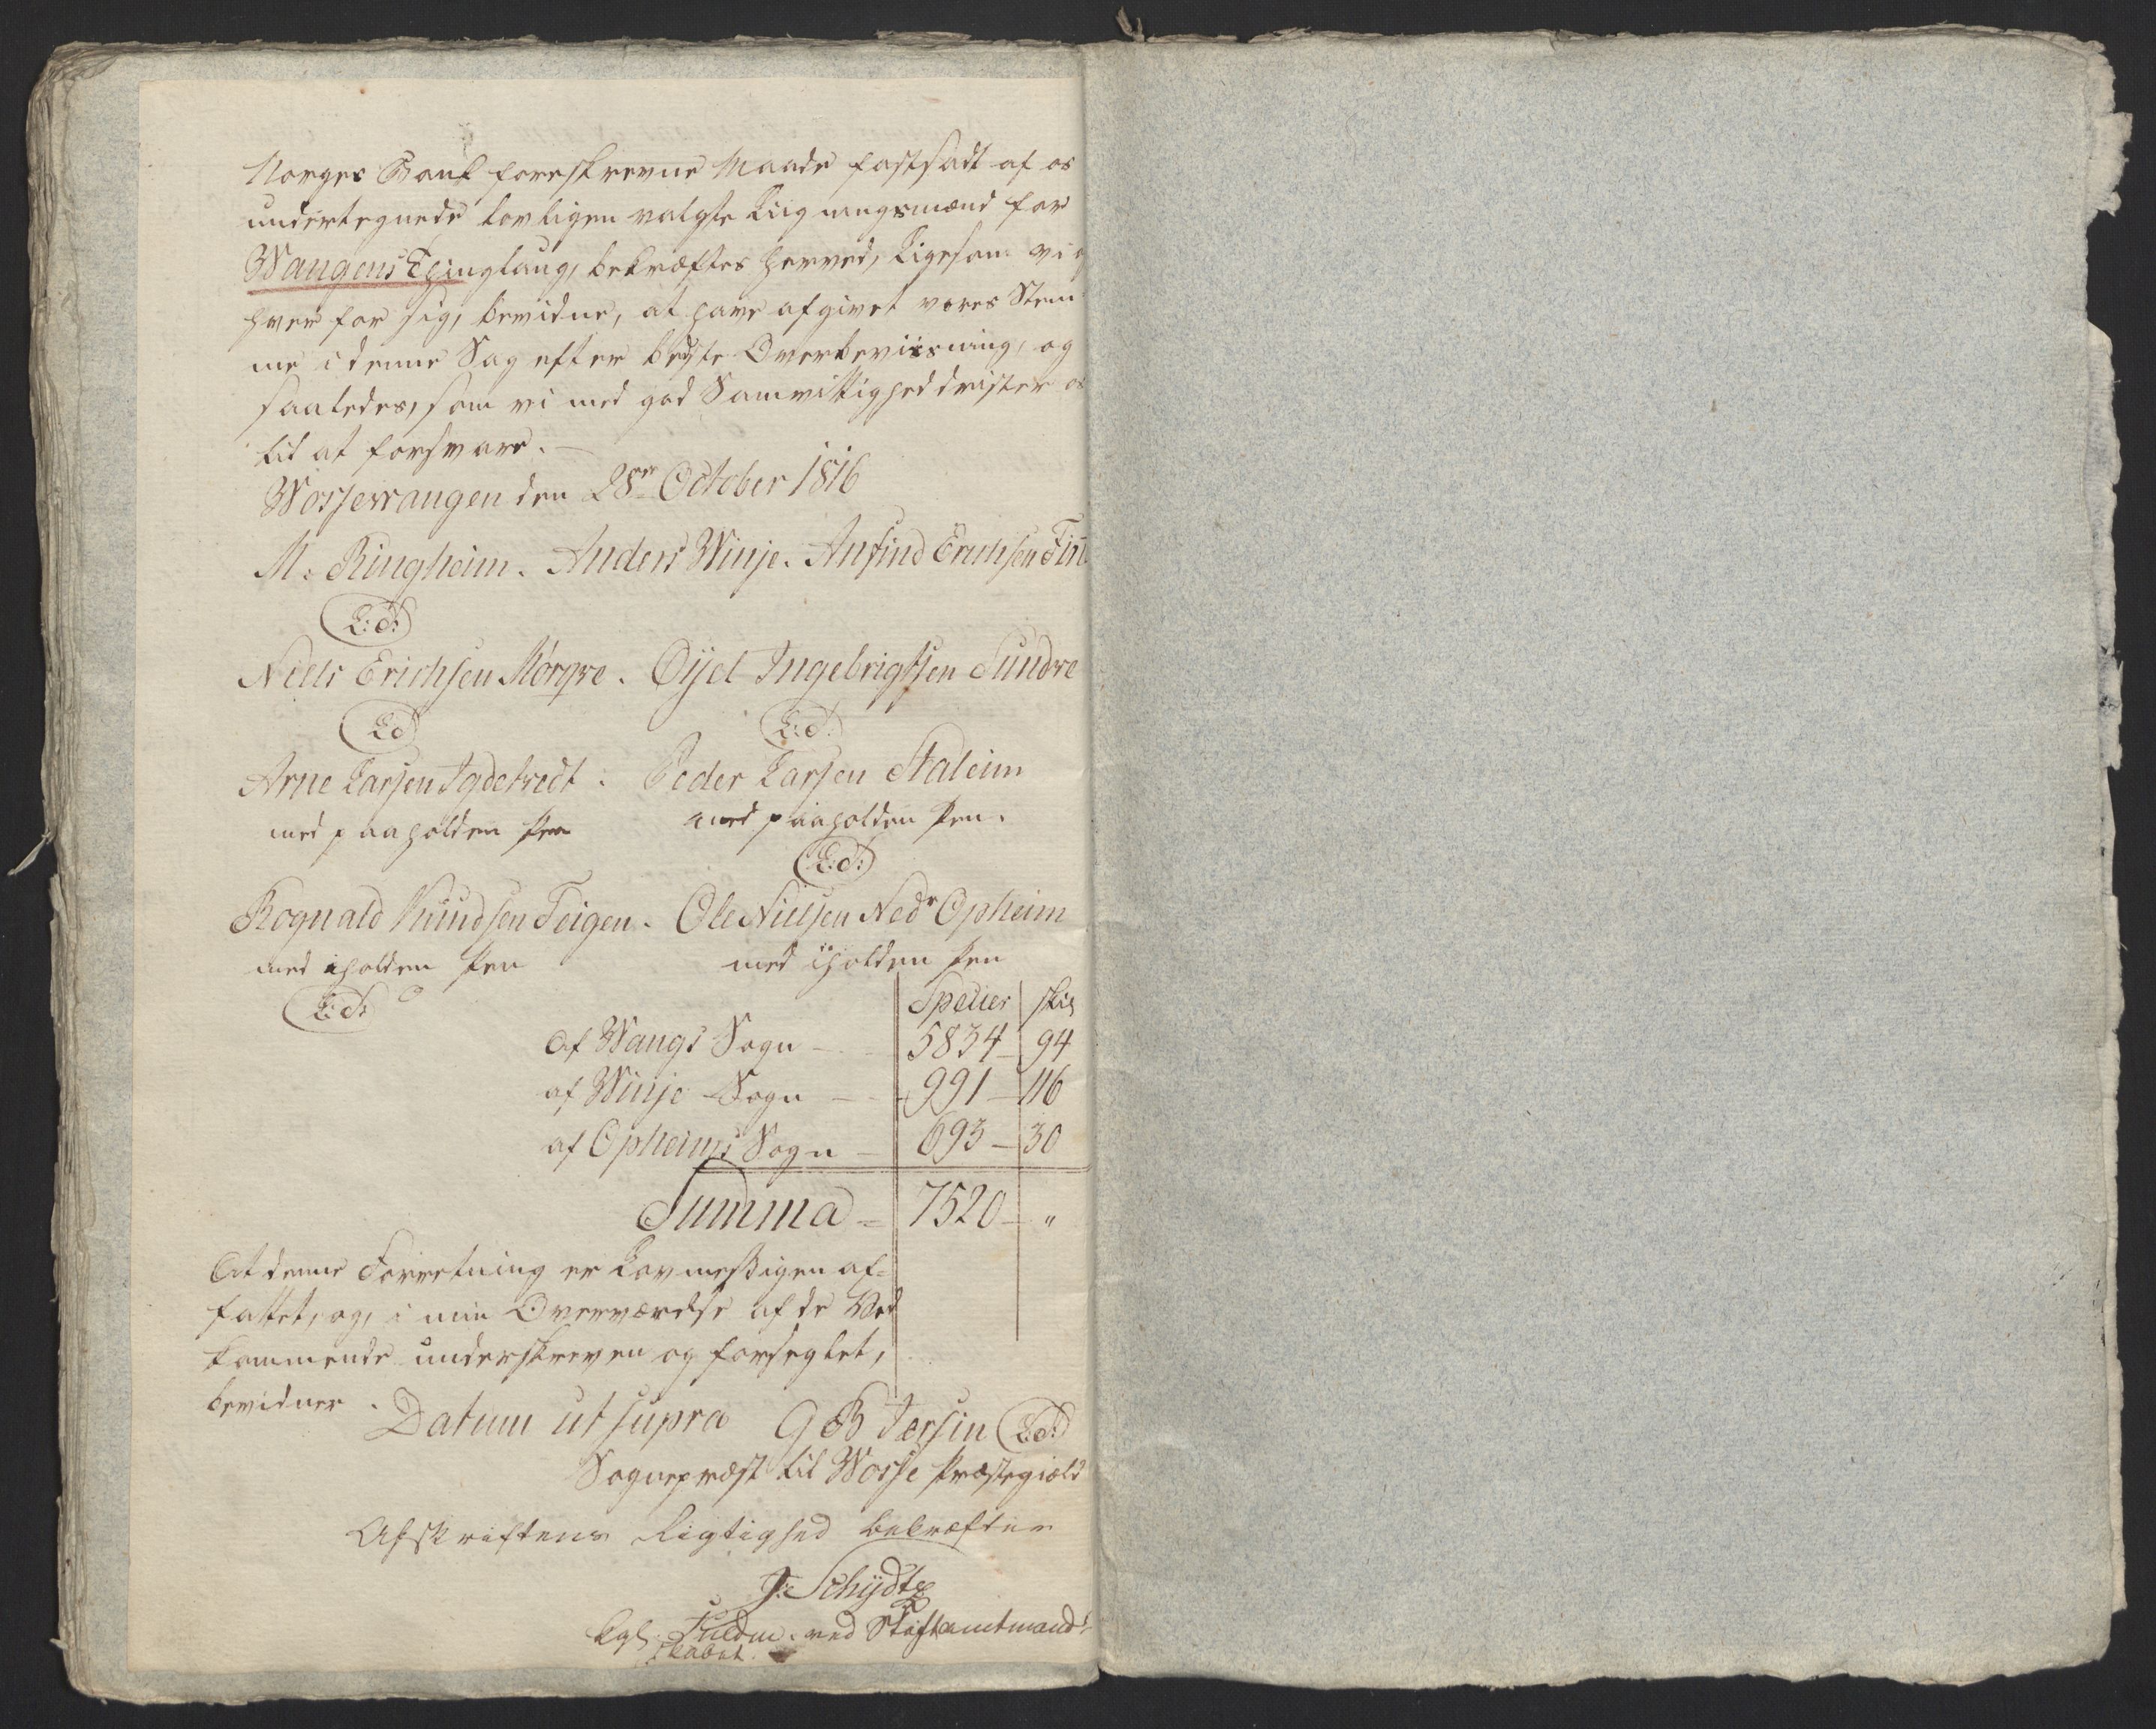 Norges Bank foreskrevne Maade fastsadt af os
undertegnede lovligen valgte Liigningsmænd for
Wangens Thinglaug, bekræftes herved, ligesom vi
hver for sig, bevidne, at have afgivet vores Stem-
me i denne Sag efter beste Overbeviisning, og
saaledes, som vi med god Samvittighed drister
til at forsvare. —
Wossevangen den 28de October 1816
M: Ringheim. Anders Winje. Anfind Erichsen
L:S:
Niels Erichsen Mörqve. Ingebrigtsen Sundve
LS L:S:
Arne Larsen . Peder Larsen Staleim
med paaholden Pen med paaholden Pen.
L:S:
Rognald Knudsen Teigen. Ole Nielsen Nedr Opheim
med iholden Pen med iholden Pen
L:S:
Specier skil
Af Wangs Sogn — 5834 — 94
af Winje Sogn — 991 — 116
af Opheims Sogn — 693 — 30
Summa = 7520 — "
At denne Forretning er Lovmessigen af-
fattet, og, i min Overværelse af de Ved
kommende underskreven og forseglet,
bevidner.
Datum ut supra G B Jersin L:S:
Sognepræst til Wosse Præstegield
Afskriftens Rigtighed bekræfter
J: Schydtz
kgl. Fuldm. ved Stiftamtmand-
skabet.